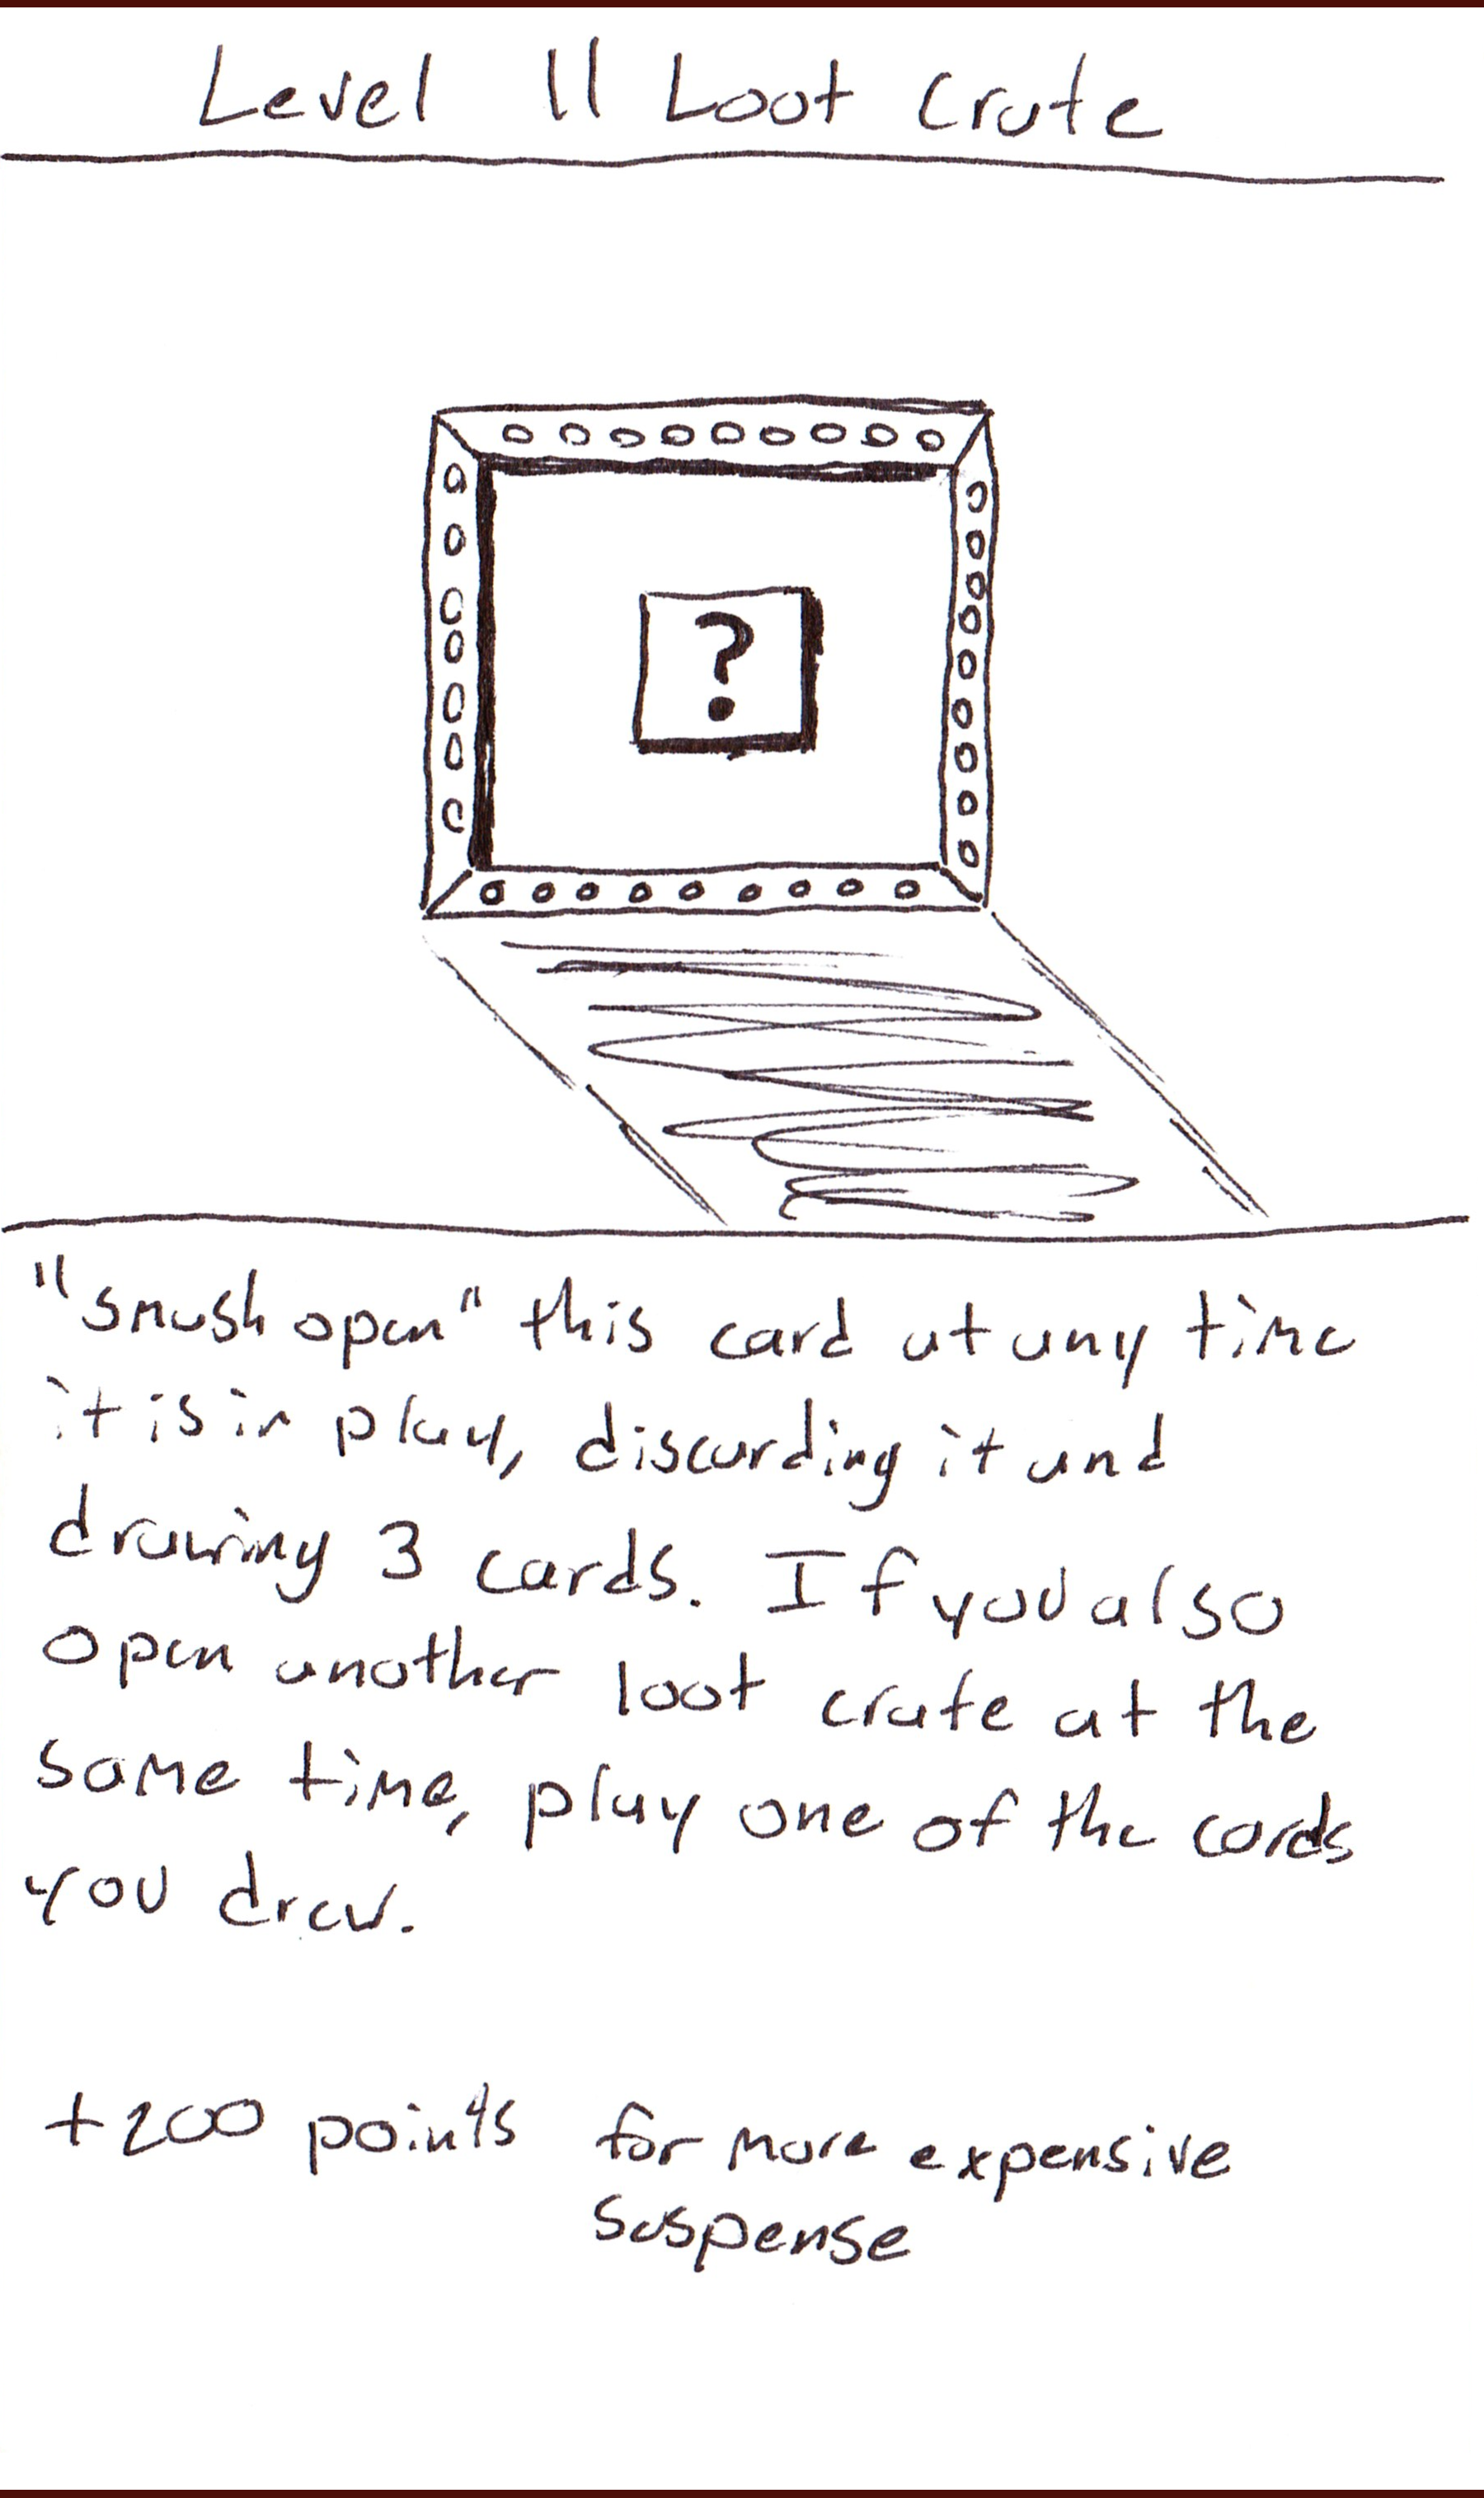 Level 11 Loot Crate
?
"smash open" this card at any time
it is in play, discarding it and
drawing 3 cards. If you also
open another loot crate at the
same time, play one of the cards
you drew.
+200 points for more expensive
suspense